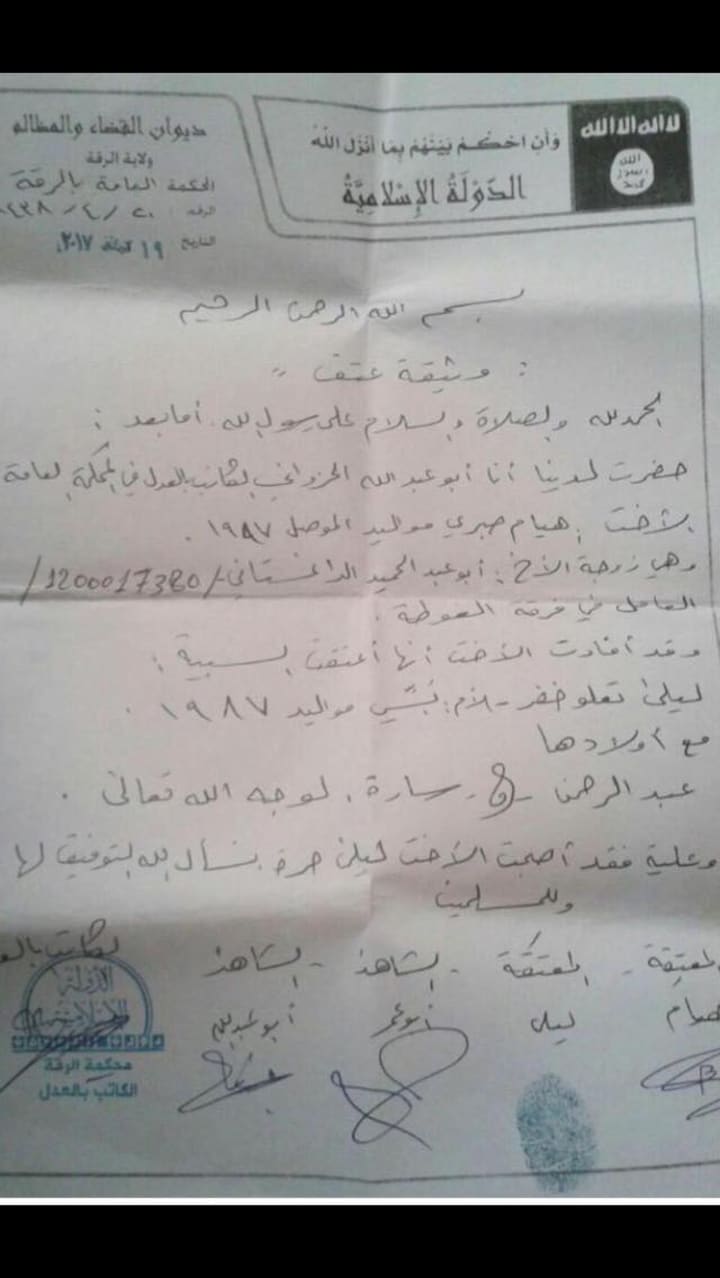 لا اله الا الله
الله
رسول
محمد
وَأَنِ احْكُم بَيْنَهُم بِمَا أَنْزَلَ اللَّهُ
الدَّوْلَةُ الإِسْلَامِيَّةُ
ديوان القضاء والمظالم
ولاية الرقة
المحكمة العامة بالرقة
الرقم: ٢٠ / ٤ / ١٤٣٨
التاريخ ١٩ ٢٠١٧
بسم الله الرحمن الرحيم
: وثيقة عتق "
الحمد لله والصلاة والسلام على رسول الله. أما بعد :
حضرت لدينا أنا أبو عبد الله الكاتب بالعدل في المحكمة العامة
الأخت : هيام صبري مواليد الموصل ١٩٨٧ .
وهي زوجة الأخ : أبو عبد الحميد الداغستاني /1200017380/
العامل في فرقة الغوطة .
وقد أفادت الأخت أنها أعتقت السبية :
ليلى تعلو خضر - الأم : مواليد ١٩٨٧ .
مع أولادها
عبد الرحمن و سارة . لوجه الله تعالى .
وعليه فقد أصبحت الأخت ليلى حرة . نسأل الله التوفيق لها
وللمسلمين
المعتِقة - المعتَقة - الشاهد - الشاهد الكاتب بالعدل
هيام ليلى أبو عمر أبو عبد الله
الدولة
الإسلامية
محكمة الرقة
الكاتب بالعدل